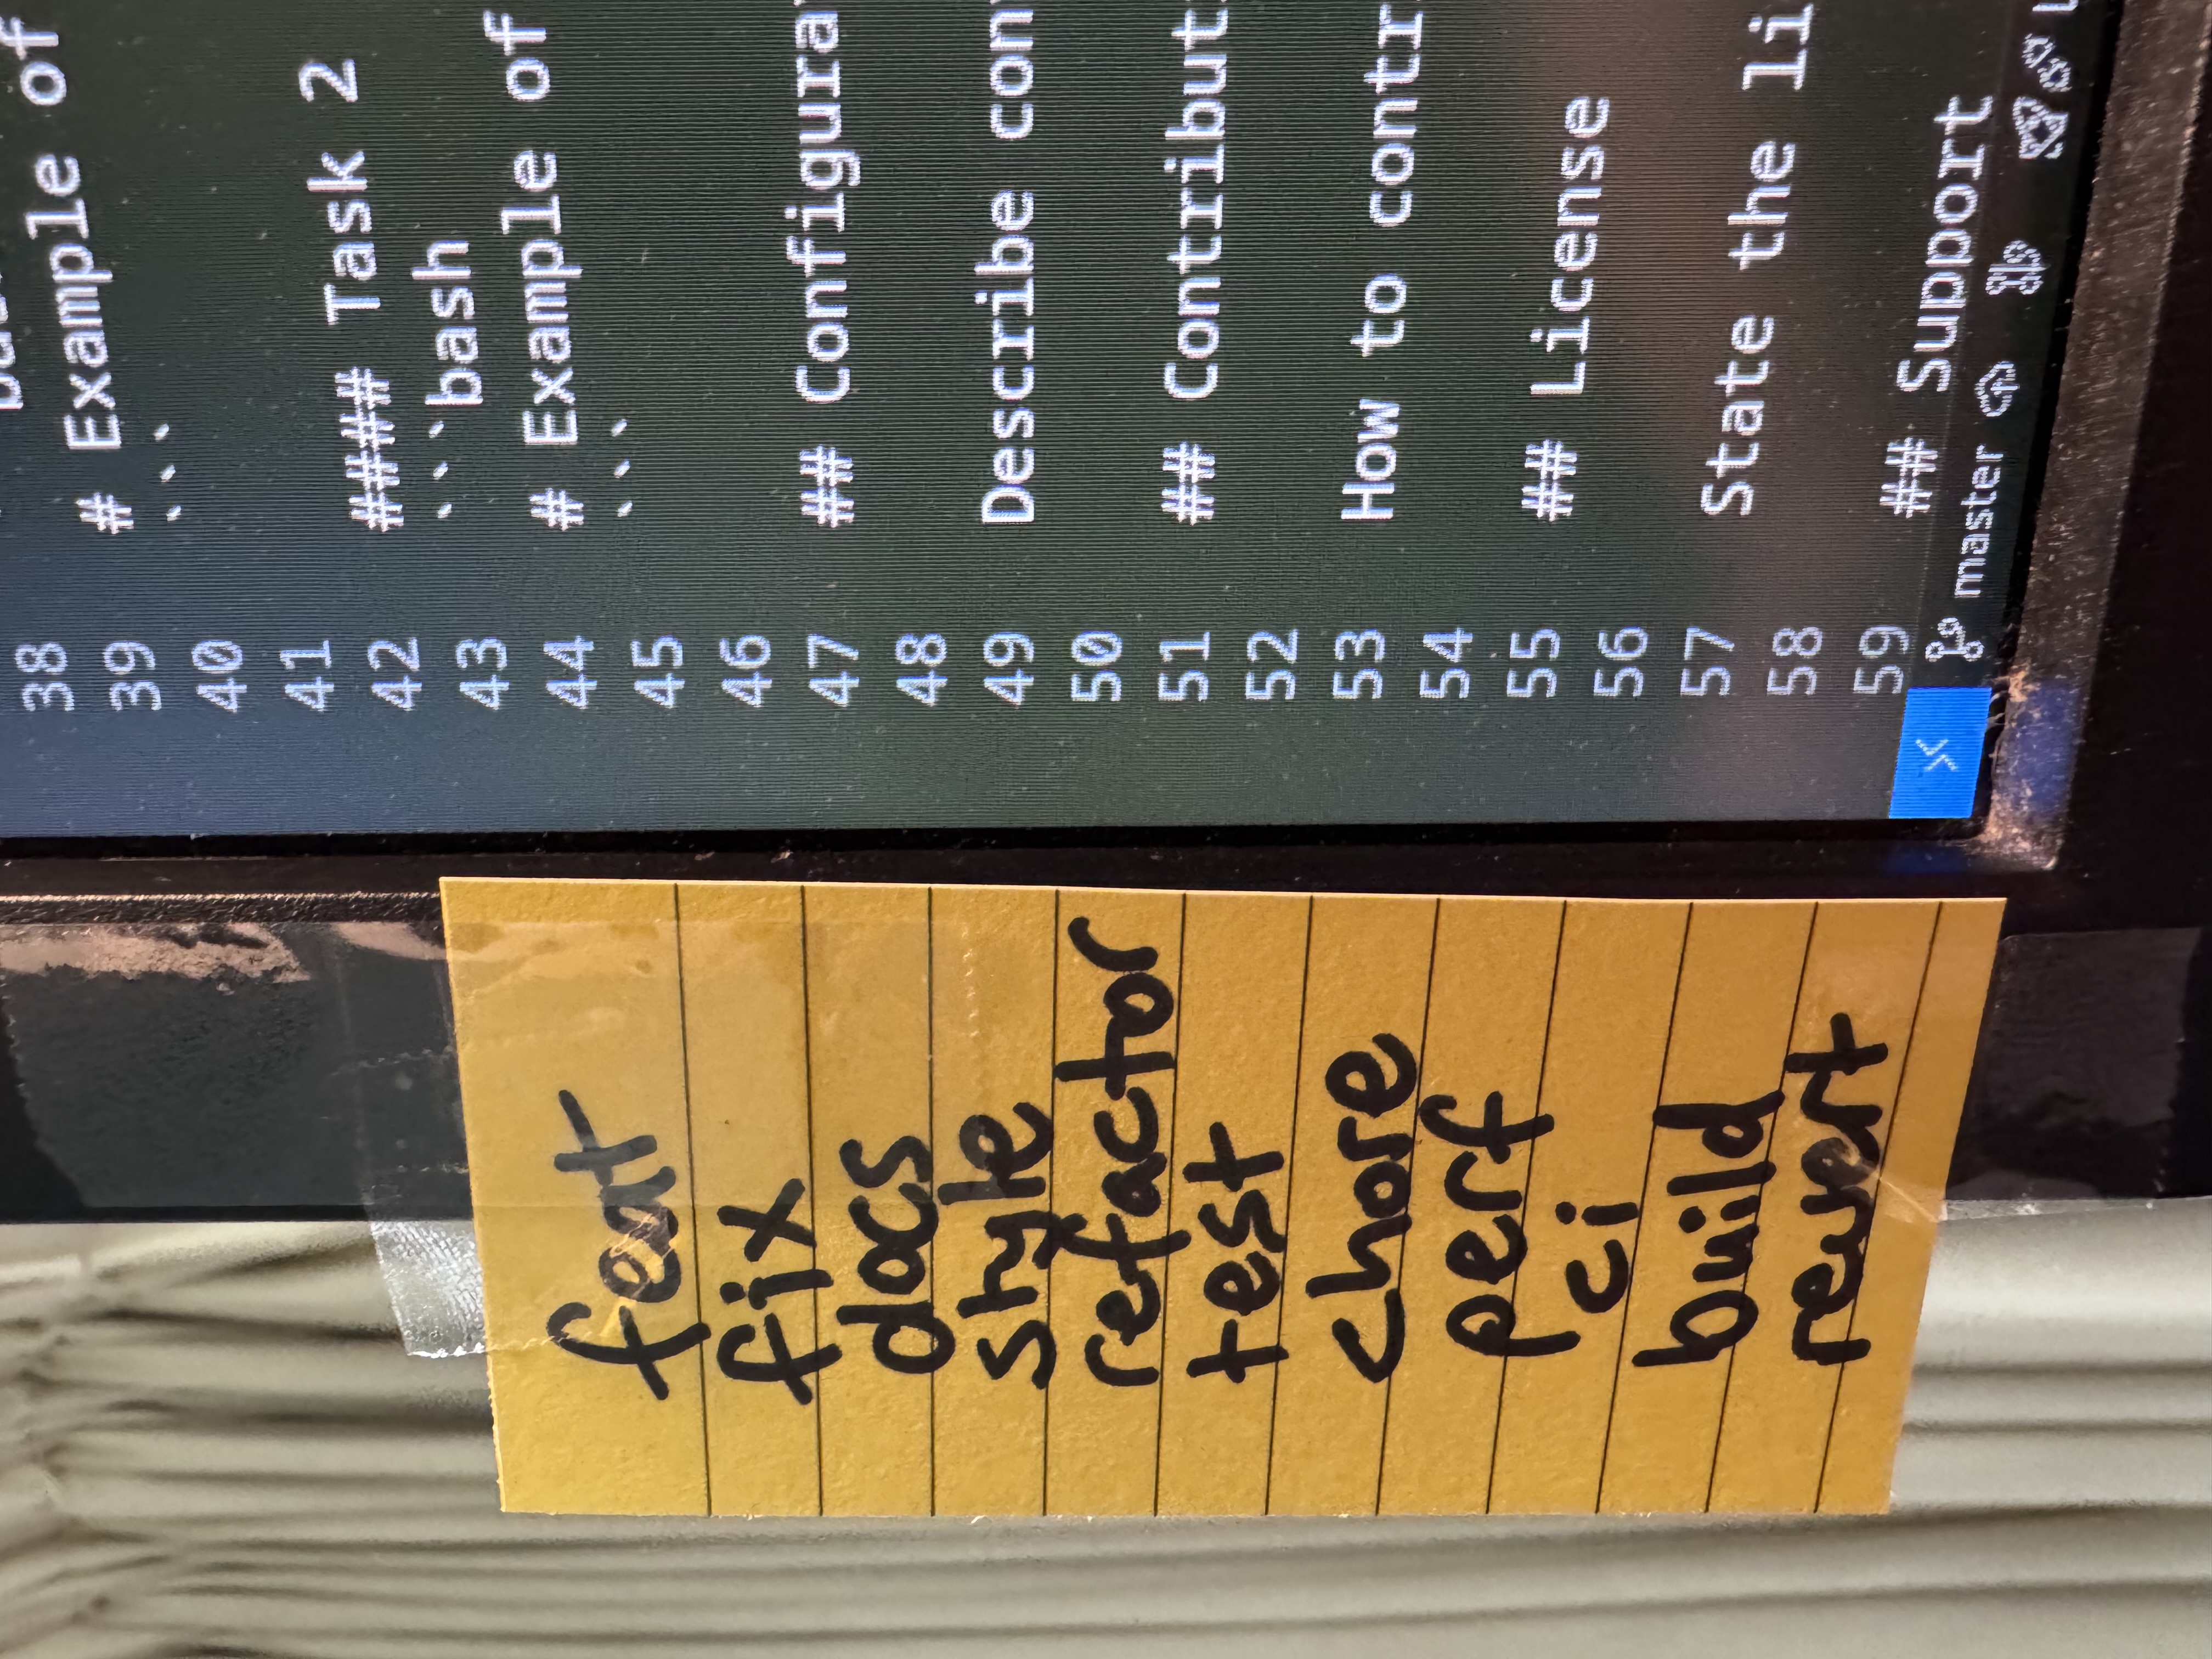 feat
fix
docs
style
refactor
test
chore
perf
ci
build
revert
38
39 # Example of
40 ```
41
42 #### Task 2
43 ```bash
44 # Example of
45 ```
46
47 ## Configura
48
49 Describe con
50
51 ## Contribut
52
53 How to contr
54
55 ## License
56
57 State the li
58
59 ## Support
master